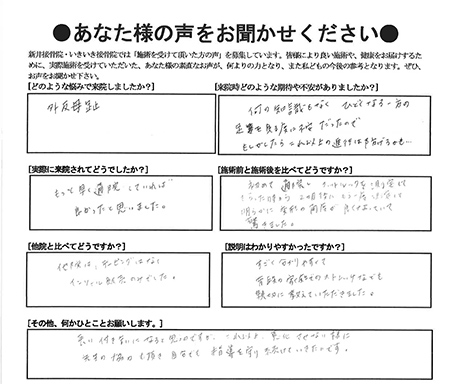 ●あなた様の声をお聞かせください●
新井接骨院・いきいき接骨院では「施術を受けて頂いた方の声」を募集しています。皆様により良い施術や、健康をお届けするた
めに、実際施術を受けていただいた、あなた様の素直なお声が、何よりの力となり、また私どもの今後の参考となります。ぜひ、
お声をお聞かせ下さい。
【どのような悩みで来院しましたか?】
外反母趾
【来院時どのような期待や不安がありましたか?】
何の知識もなく ひどくなる一方の
足を見る度に不安だったので
もしかしたらこれ以上の進行は防げるかも…
【実際に来院されてどうでしたか?】
もっと早く通院していれば
良かったと思いました。
【施術前と施術後を比べてどうですか?】
初めて通院し
明らかに 角度が良くなっていて
驚きました。
【他院と比べてどうですか?】
他院は、テーピングはなく
インソール販売のみでした。
【説明はわかりやすかったですか?】
すごく分かりやすくて
自分の家でのストレッチなども
親切に教えていただきました。
【その他、何かひとことお願いします。】
長い付き合いになると思うのですが、これ以上、悪化させない様に
先生の協力も頂き自分でも指導を守り続けていきたいです。